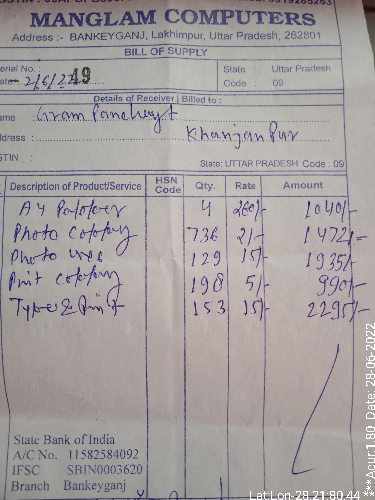 MANGLAM COMPUTERS
Address :- BANKEYGANJ, Lakhimpur, Uttar Pradesh, 262801
BILL OF SUPPLY
erial No. : 49
ate- 2/6/22
State Uttar Pradesh
Code : 09
Details of Receiver | Billed to :
ame Gram Pancheyt
ddress : Khanjan Pur
STIN :
State: UTTAR PRADESH Code : 09
Description of Product/Service HSN Code Qty. Rate Amount
A4 4 260/- 1040/-
Photo 736 2/- 1472/-
Photo 129 15/- 1935/-
Print 198 5/- 990/-
Type & Print 153 15/- 2295/-
State Bank of India
A/C No. 11582584092
IFSC SBIN0003620
Branch Bankeyganj
Lat:Lon-28.21:80.44
***Acur:1.80 Date: 28-06-2022